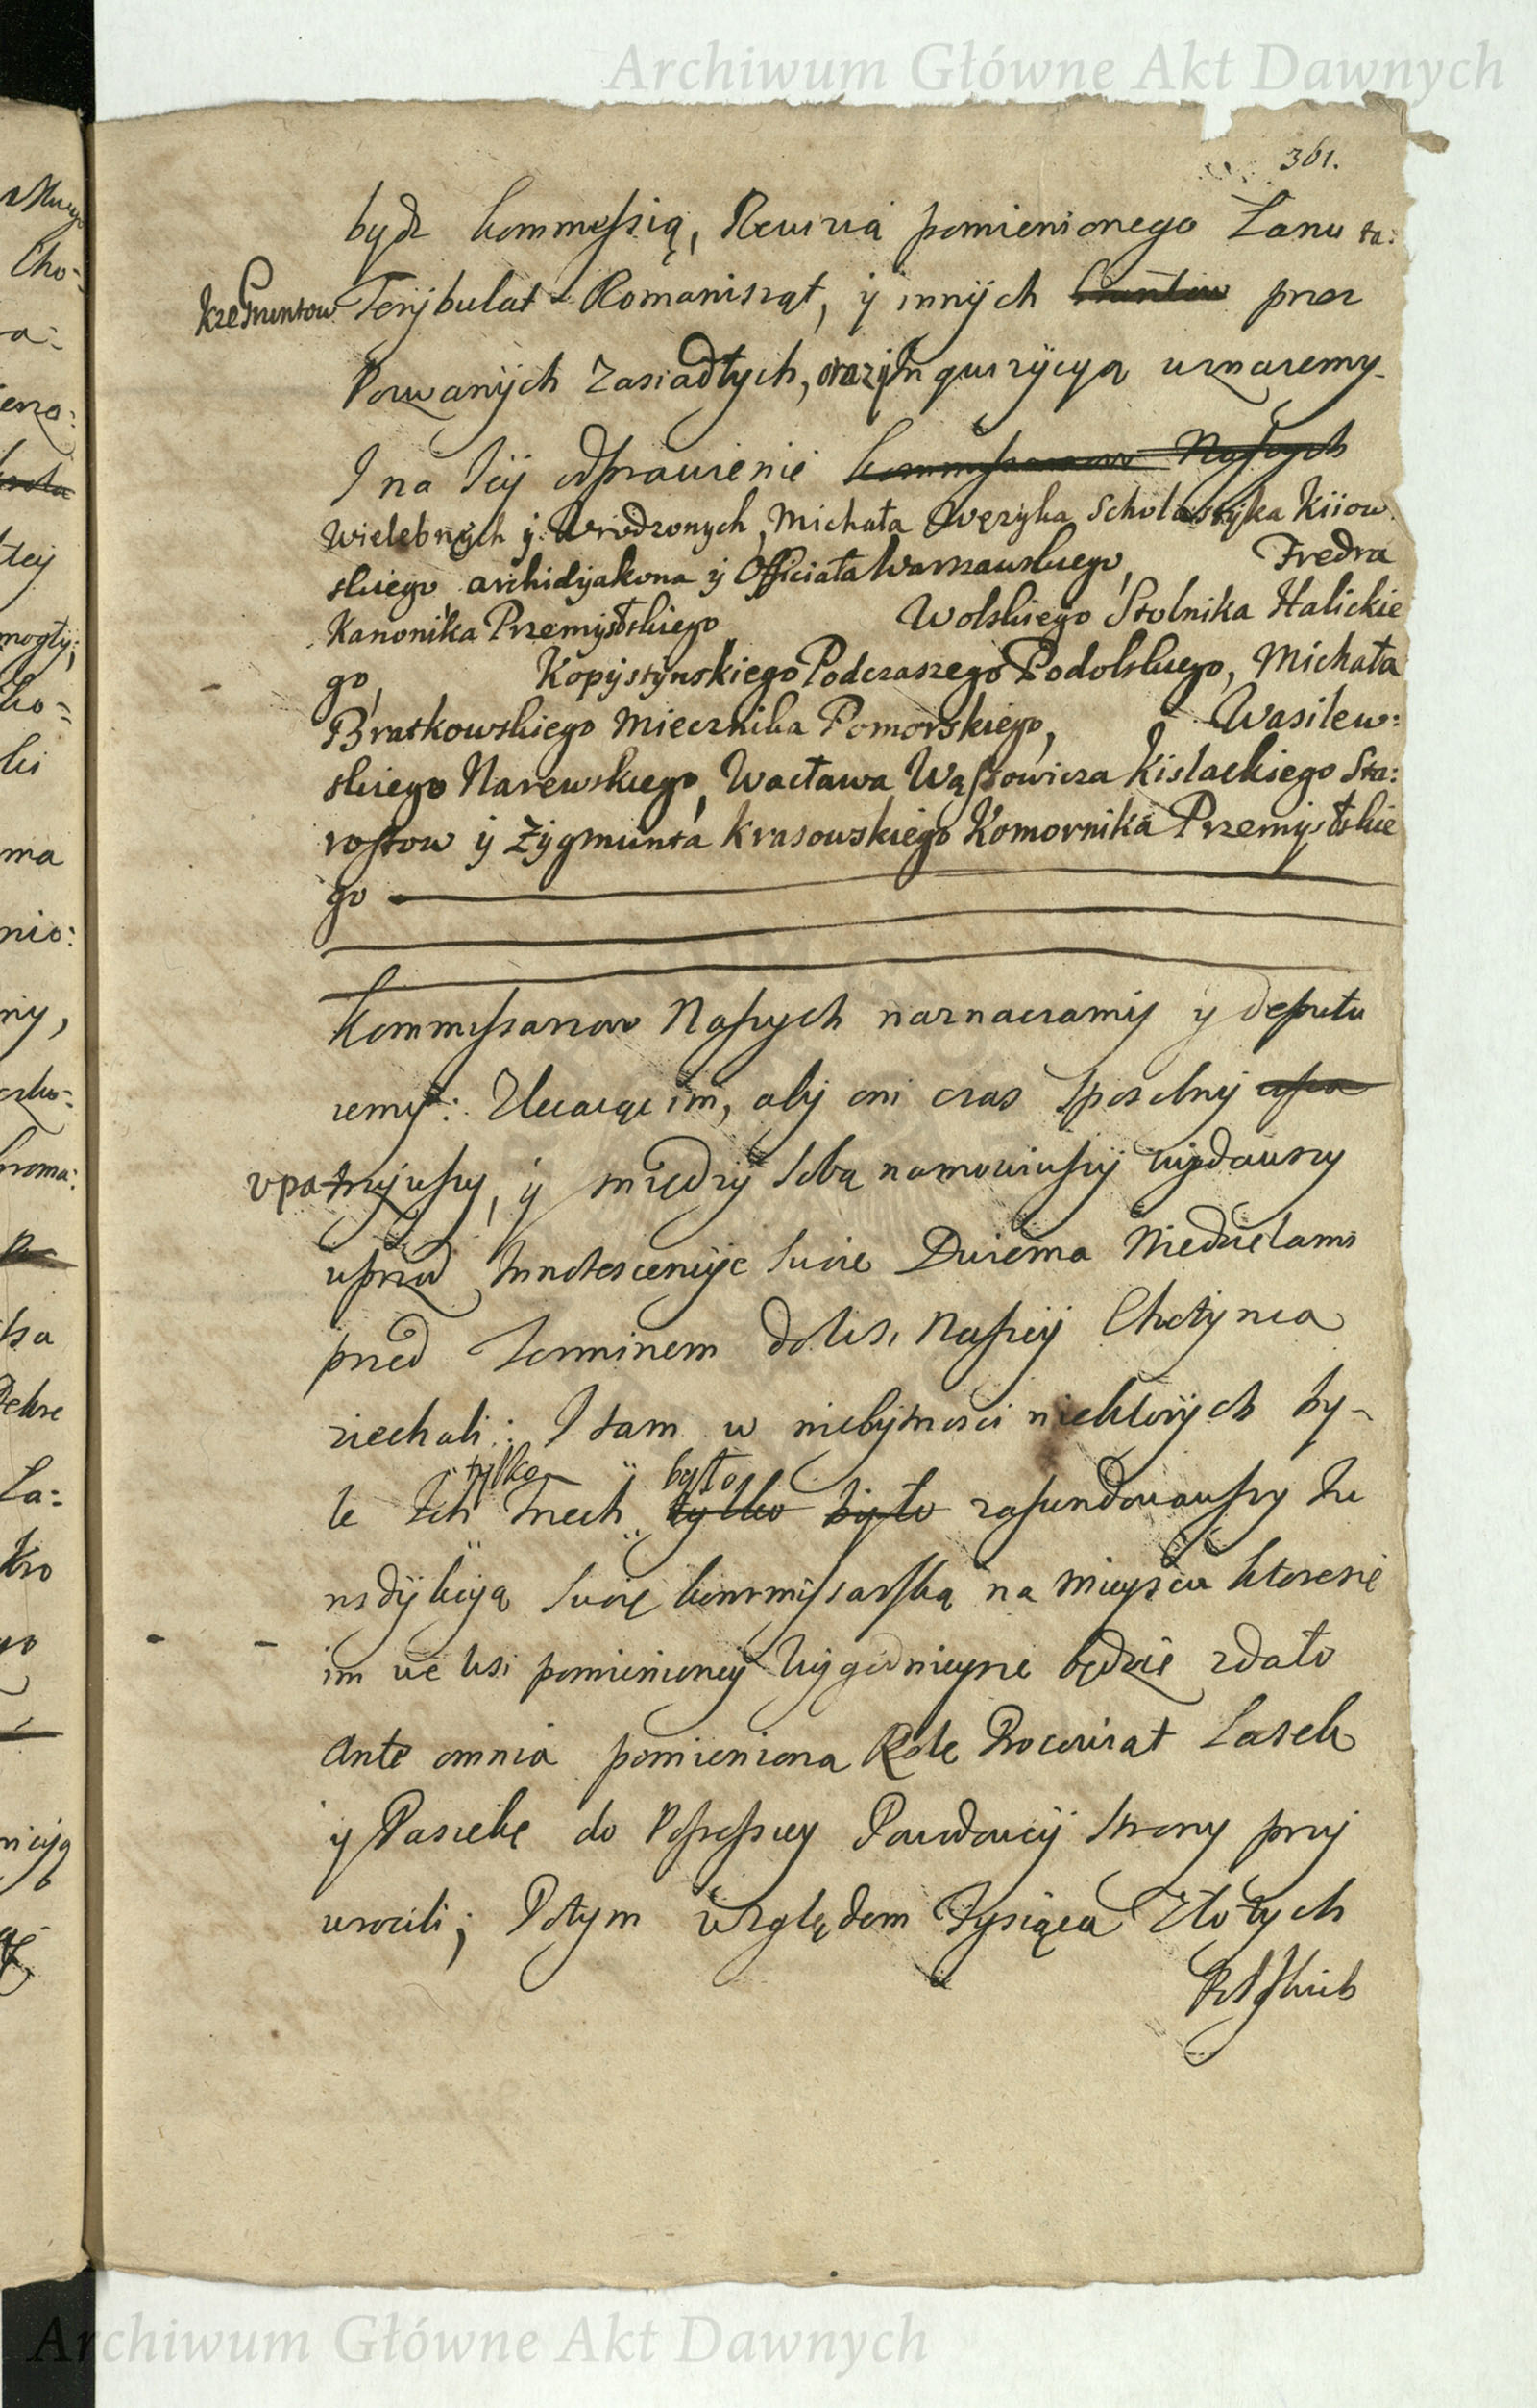 Archiwum Główne Akt Dawnych
361.
bydz kommessią, Rewizia pomienionego Łanu ta:
kze Gruntow Terybulat Romaniszat, y innych Gruntow przez
Pozwanych zasiadłych, oraz y Inquizycyą uznaiemy.
I na Iey odprawienie kommissarzow Naszych
Wielebnych y Urodzonych, Michała Wężyka Scholastyka Kiiow
skiego archidyakona y Officiała Warszawskiego, Fredra
Kanonika Przemysłskiego Wolskiego Stolnika Halickie
go, Kopystynskiego Podczaszego Podolskiego, Michała
Bratkowskiego Miecznika Pomorskiego, Wasilew:
skiego Narewskiego, Wacława Wąssowicza Kislackiego Sta:
rostow y Zygmunta Krasowskiego Komornika Przemysłskie
go
Kommissarzow Naszych naznaczamy y deputu
iemy: Zlecaiąc im, aby oni czas sposobny
upatrzywszy, y między sobą namowiwszy wydawszy
wprzod Innotescencye swoie Dwiema Niedzielami
przed Terminem do wsi Naszey Chotynca
ziechali: I tam w niebytnosci niektorych by-
le Ich tylko Trzech było tylko było zafundowawszy Iu
risdykcyą swoię kommissarską na mieyscu ktoresię
im we wsi pomienioney wygodnieysze będzie zdało
Ante omnia pomieniona Role Lasek
y Pasiekę do Possessyey Powodowey strony przy
wrocili; Potym względem Tysiąca Złotych
Polskich
Archiwum Główne Akt Dawnych